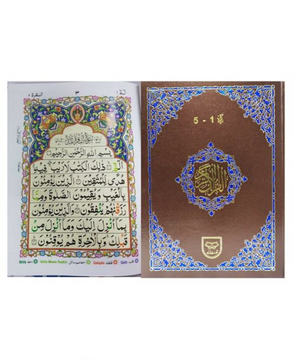 البقرة ٢
٣
بِسْمِ اللهِ الرَّحْمٰنِ الرَّحِيْمِ
الٓمّٓ ذٰلِكَ الْكِتٰبُ لَا رَيْبَ فِيْهِ
هُدًى لِّلْمُتَّقِيْنَ الَّذِيْنَ يُؤْمِنُوْنَ
بِالْغَيْبِ وَيُقِيْمُوْنَ الصَّلٰوةَ وَمِمَّا
رَزَقْنٰهُمْ يُنْفِقُوْنَ وَالَّذِيْنَ يُؤْمِنُوْنَ
بِمَآ اُنْزِلَ اِلَيْكَ وَمَآ اُنْزِلَ مِنْ
قَبْلِكَ وَبِالْاٰخِرَةِ هُمْ يُوْقِنُوْنَ
5 - 1
القرآن الكريم